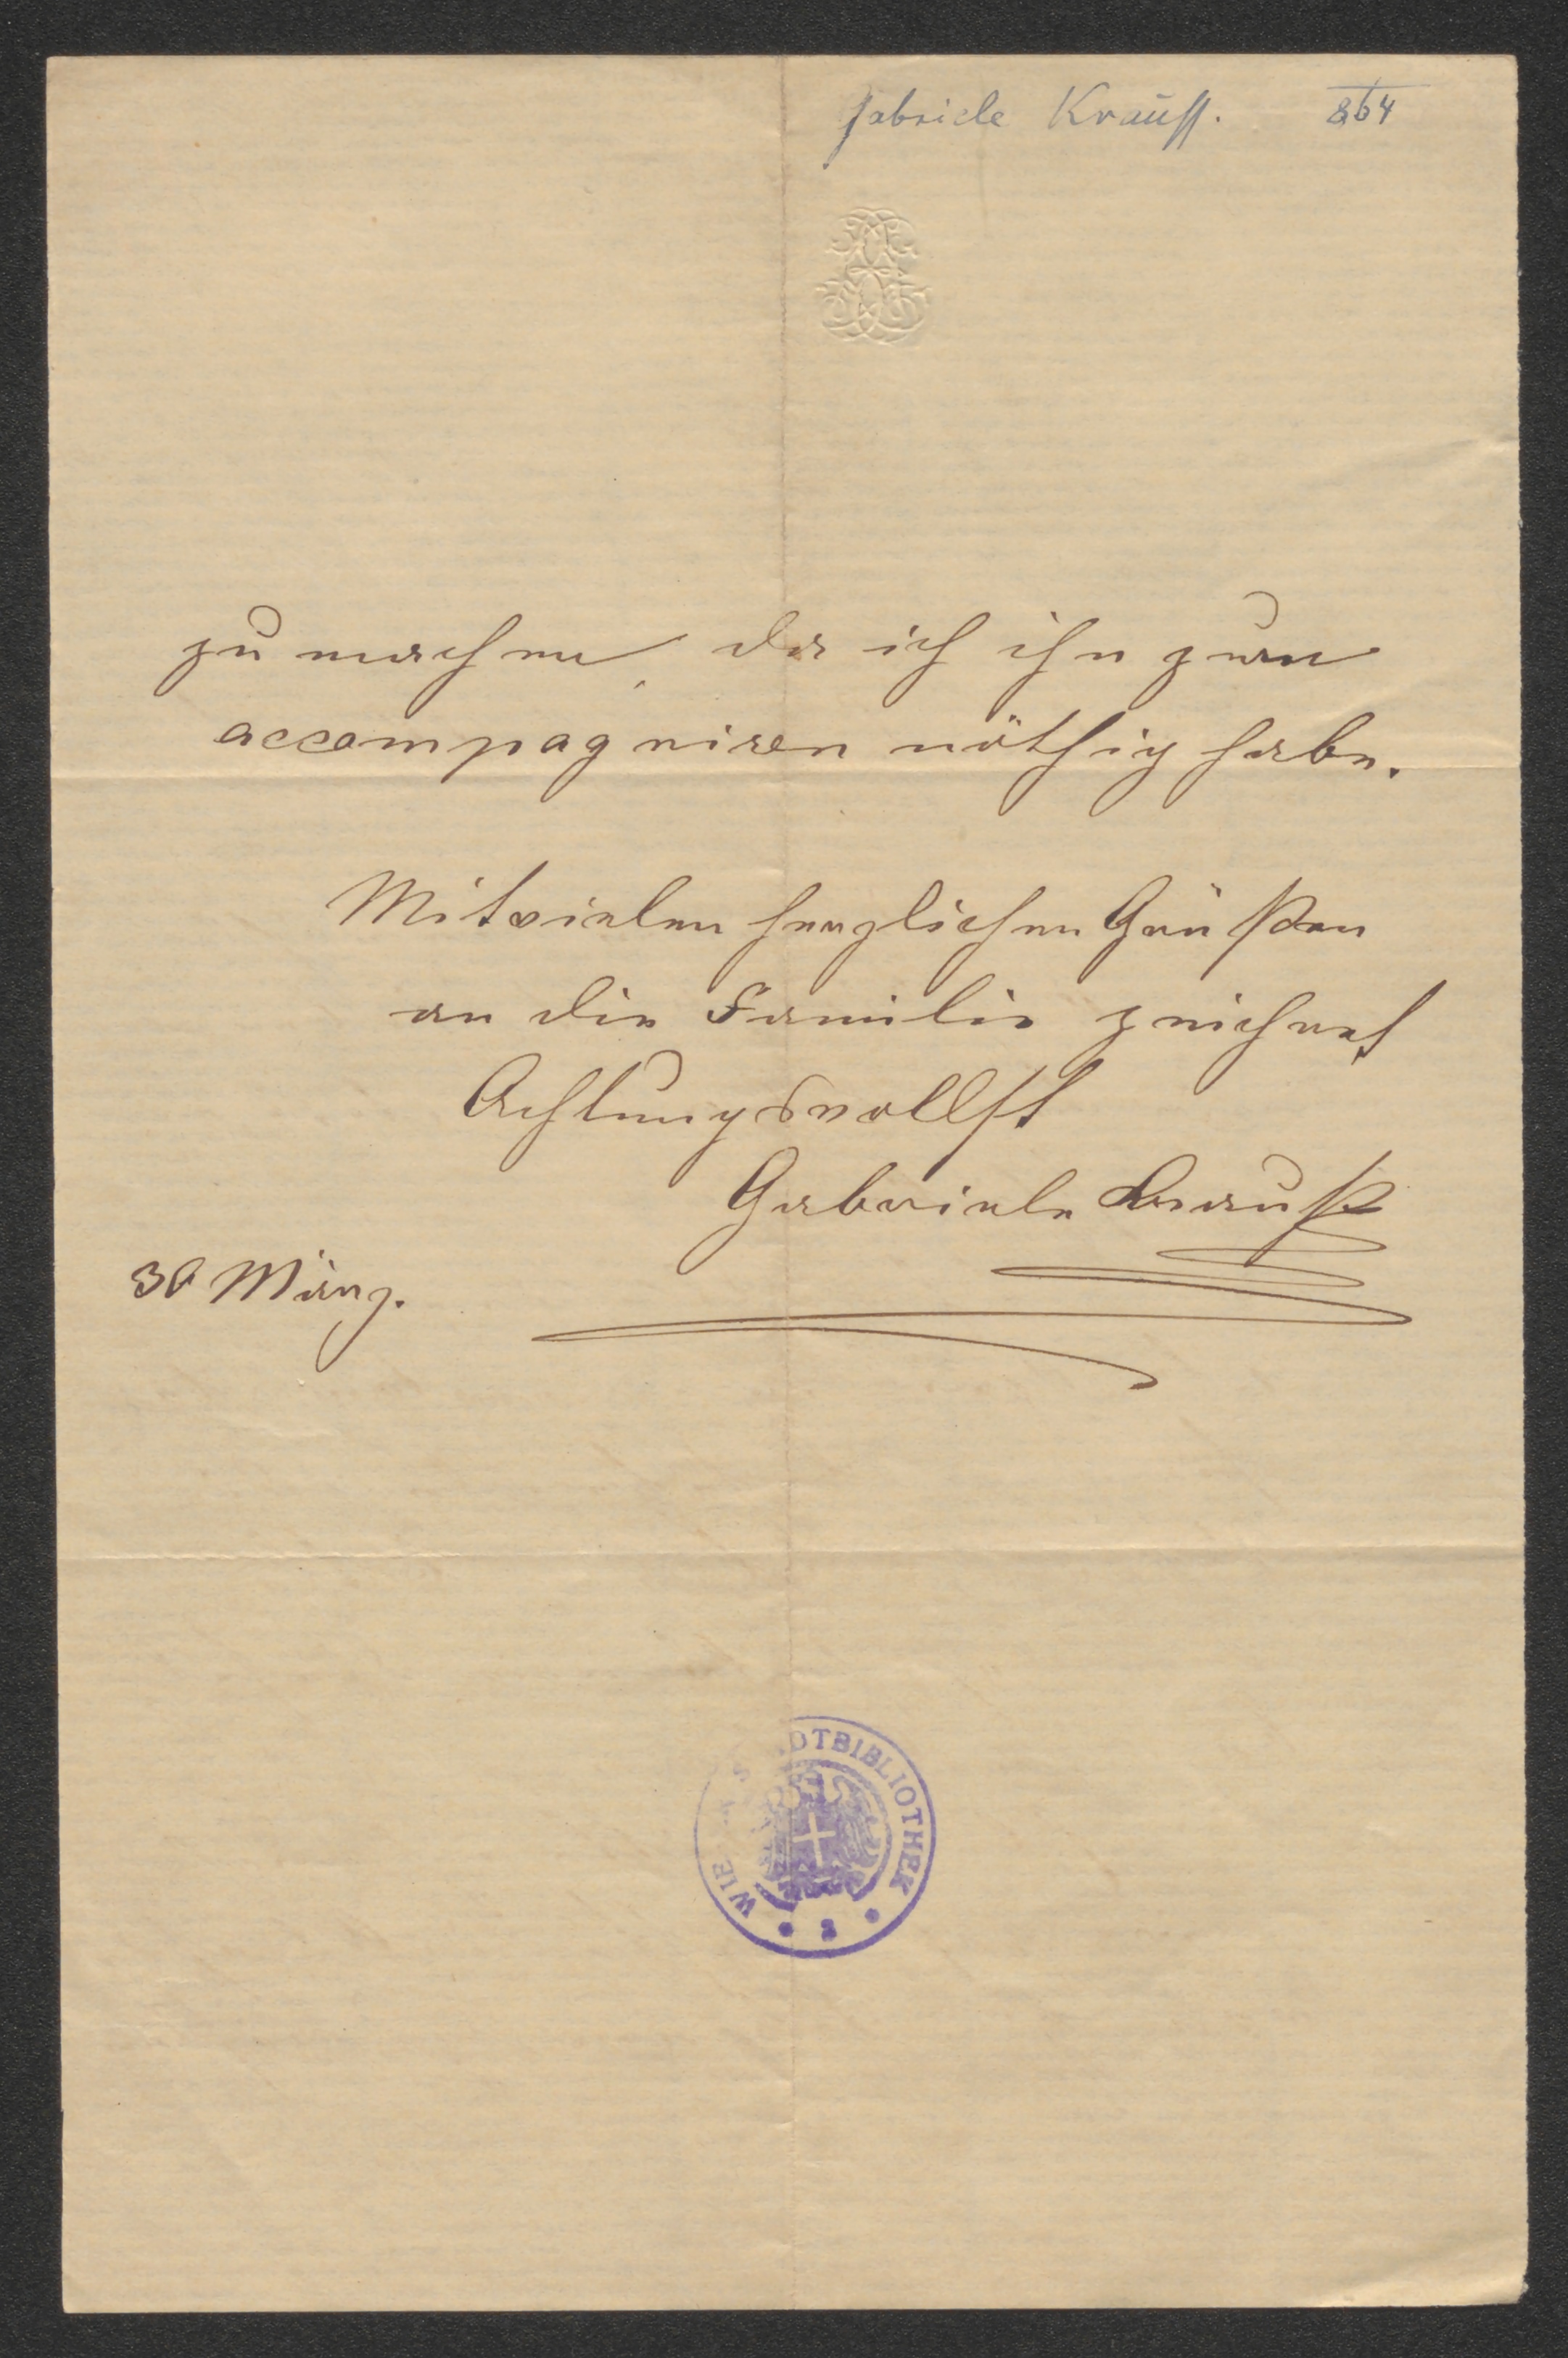 Gabriele Krauss. 864
zu machen, da ich ihn zum
accompagniren nöthig habe.
Mit vielen herzlichen Grüßen
an die Familie zeichnet
Achtungsvollst
Gabriele Krauß
30 März.
WIE STADTBIBLIOTHEK